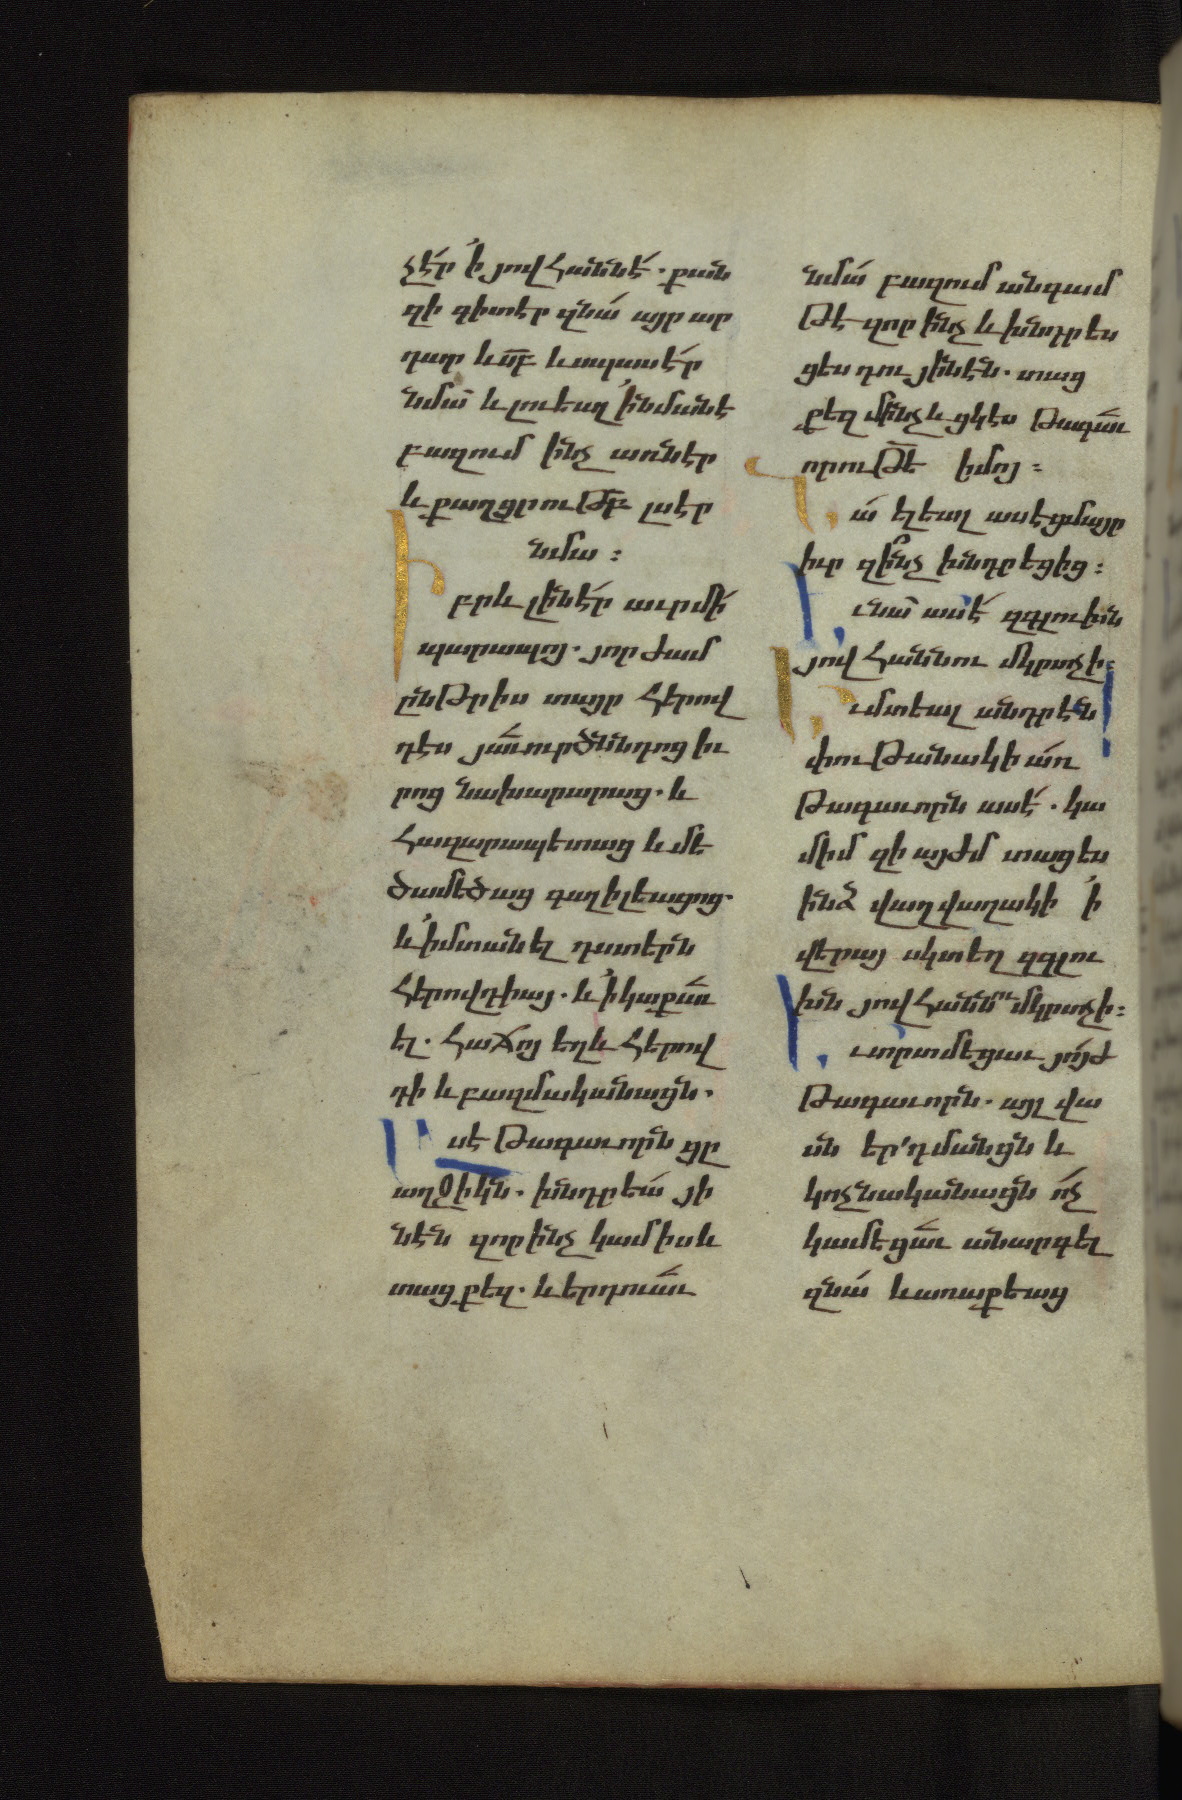 չէր ՛ի յովհաննէ. քան
զի գիտէր զնա այր ար
դար և սբ և սպասէր
նմա և լուեալ ՛ի նմանէ
բազում ինչ առնէր
և քաղցրութբ լսէր
նմա :
Իբրև լինէր աւր մի
պարապոյ. յորժամ
ընթրիս տայր հերով
դէս յաւուր ծննդոց իւ
րոց նախարարաց. և
հազարապետաց և մե
ծամեծաց գաղիլեացոց.
և ՛ի մտանել դստերն
հերովդիայ. և ՛ի կաքաւ
ել. հաճոյ եղև հերով
դի և բազմականացն.
Ասէ թագաւորն ցը
աղջիկն. խնդրեա յի
նէն զոր ինչ կամիս և
տաց քեզ. և երդուաւ
նմա բազում անգամ
թէ զոր ինչ և խնդրես
ցես դու յինէն. տաց
քեզ մինչև ցկէս թագաւ
որութե իմոյ :
Նա ելեալ ասէ ցմայր
իւր զինչ խնդրեցից :
Եւ նա ասէ զգլուխն
յովհաննու մկրտչի:
Եւ մտեալ անդրէն
փութանակի առ
թագաւորն ասէ. կա
միմ զի այժմ տացես
ինձ վաղվաղակի ՛ի
վերայ սկտեղ զգլու
խն յովհաննու մկրտչի:
Եւ տրտմեցաւ յոյժ
թագաւորն. այլ վա
սն երդմանցն և
կոչնականացն ոչ
կամեցաւ անարգել
զնա և առաքեաց